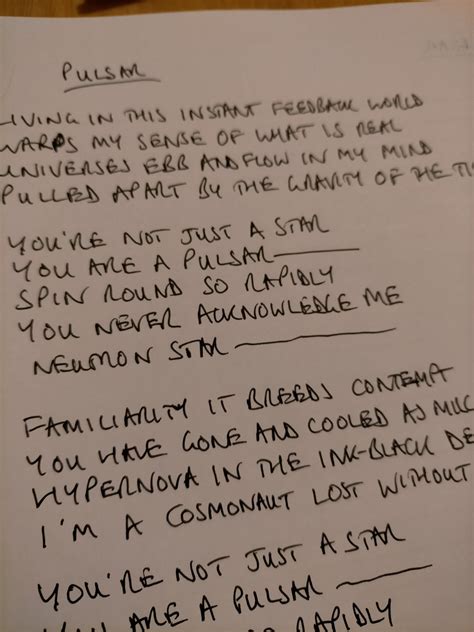 PULSAR
LIVING IN THIS INSTANT FEEDBACK WORLD
WARPS MY SENSE OF WHAT IS REAL
UNIVERSES EBB AND FLOW IN MY MIND
PULLED APART BY THE GRAVITY OF THE TI
YOU'RE NOT JUST A STAR
YOU ARE A PULSAR
SPIN ROUND SO RAPIDLY
YOU NEVER ACKNOWLEDGE ME
NEUTRON STAR
FAMILIARITY IT BREEDS CONTEMPT
YOU HAVE GONE AND COOLED AS
HYPERNOVA IN THE INK-BLACK DE
I'M A COSMONAUT LOST WITHOUT
YOU'RE NOT JUST A STAR
YOU ARE A PULSAR
SO RAPIDLY